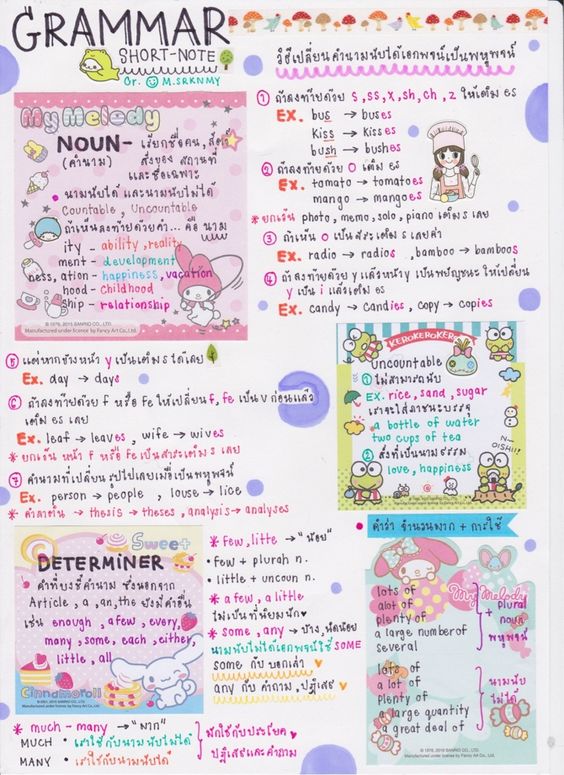 GRAMMAR
SHORT-NOTE
Cr. M.SRKNMY
My Melody
NOUN - เรียกชื่อคน, สัตว์
(คำนาม) สิ่งของ สถานที่
และชื่อเฉพาะ
• นามนับได้ และนามนับไม่ได้
Countable, Uncountable
ถ้าเห็นลงท้ายด้วยคำ... คือ นาม
ity - ability, reality
ment - development
ness, ation - happiness, vacation
hood - childhood
ship - relationship
© 1976, 2015 SANRIO CO., LTD.
Manufactured under licence by Fancy Art Co.,Ltd.
วิธีเปลี่ยนคำนามนับได้เอกพจน์เป็นพหูพจน์
① ถ้าลงท้ายด้วย s, ss, x, sh, ch, z ให้เติม es
EX. bus → buses
kiss → kisses
bush → bushes
② ถ้าลงท้ายด้วย O เติม es
Ex. tomato → tomatoes
mango → mangoes
* ยกเว้น photo, memo, solo, piano เติม s เลย
③ ถ้าเห็น O เป็นสระเติม s เลยค่า
Ex. radio → radios, bamboo → bamboos
④ ถ้าลงท้ายด้วย y แล้วหน้า y เป็นพยัญชนะ ให้เปลี่ยน
y เป็น i แล้วเติม es
Ex. candy → candies, copy → copies
⑤ แต่หากข้างหน้า y เป็นเติม s ได้เลย
Ex. day → days
⑥ ถ้าลงท้ายด้วย f หรือ fe ให้เปลี่ยน f, fe เป็น v ก่อนแล้ว
เติม es เลย
Ex. leaf → leaves, wife → wives
* ยกเว้น หน้า f หรือ fe เป็นสระเติม s เลย
⑦ คำนามที่เปลี่ยนรูปไปเลยเมื่อเป็นพหูพจน์
Ex. person → people, louse → lice
* คำลาติน → thesis → theses, analysis → analyses
KEROKEROKEROPPI
uncountable
① ไม่สามารถนับ
EX. rice, sand, sugar
เราจะใส่ภาชนะบรรจุ
a bottle of water
two cups of tea
② สิ่งที่เป็นนามธรรม
love, happiness
OISHII?
Sweet
DETERMINER
คำที่บ่งชี้คำนาม ซึ่งนอกจาก
Article, a, an, the ยังมีคำอื่น
เช่น enough, a few, every,
many, some, each, either,
little, all
Cinnamoroll
* few, litte → "น้อย"
• few + plurah n.
• little + uncoun n.
* a few, a little
ไม่เป็นที่นิยมนัก
* some, any → บ้าง, นิดหน่อย
นามนับไม่ได้เอกพจน์ใช้ SOME
some กับ บอกเล่า
any กับ คำถาม, ปฏิเสธ
• คำว่า จำนวนมาก + การใช้
My Melody
lots of
alot of
plenty of
a large number of
several
+ plural
noun
พหูพจน์
lots of
a lot of
plenty of
a large quantity
a great deal of
นามนับ
ไม่ได้
© 1976, 2015 SANRIO CO., LTD.
Manufactured under licence by Fancy Art Co.,Ltd.
* much - many → "มาก"
MUCH • เราใช้กับนามนับไม่ได้
MANY • เราใช้กับนามนับได้
มักใช้กับประโยค
ปฏิเสธและคำถาม